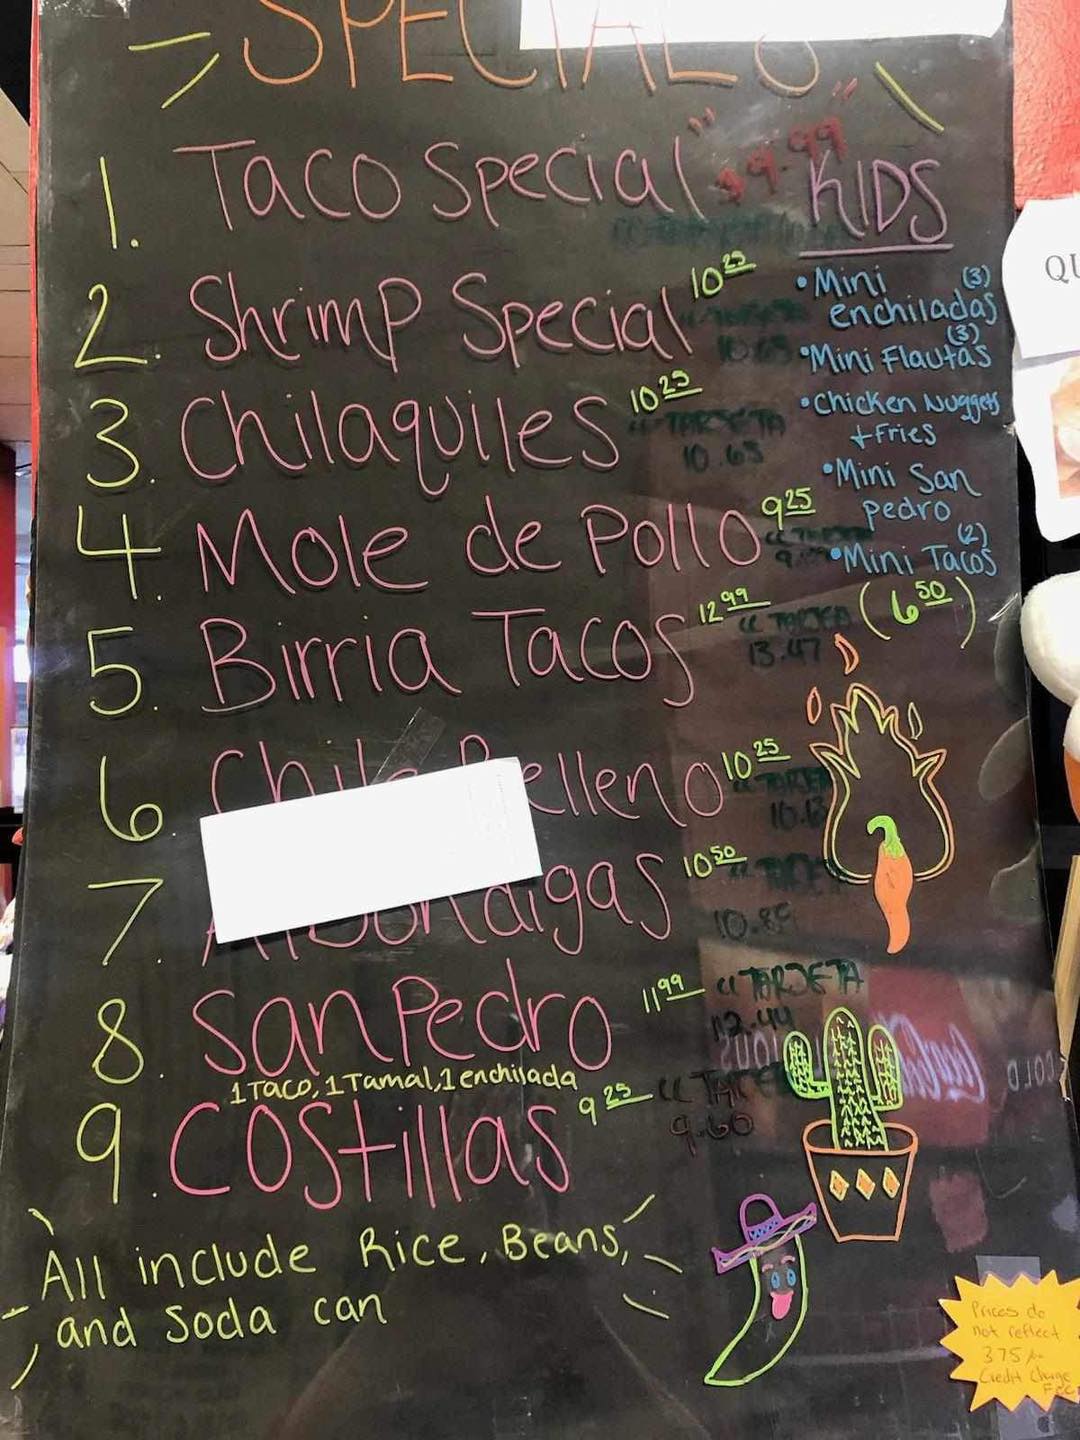 SPECIALS
1. Taco Special" $9.99"
2. Shrimp Special 10 25
10.65
3. Chilaquiles 10 25
" TARJETA
10.65
4. Mole de Pollo 9 25
" TARJETA
5. Birria Tacos 12 99
" TARJETA
13.47
6 Relleno 10 25
" TARJETA
7. 10 50
" TARJETA
10.89
8. San Pedro 11 99
" TARJETA
12.44
1 Taco, 1 Tamal, 1 enchilada
9. Costillas 9 25
9.60
All include Rice, Beans,
and Soda can
KIDS
• Mini (3)
enchiladas
(3)
• Mini Flautas
• Chicken Nuggets
+ Fries
• Mini San
pedro
(2)
• Mini Tacos
(6 50)
QU
Coca-Cola
COLD
Prices do
not reflect
Credit Charge
Fee